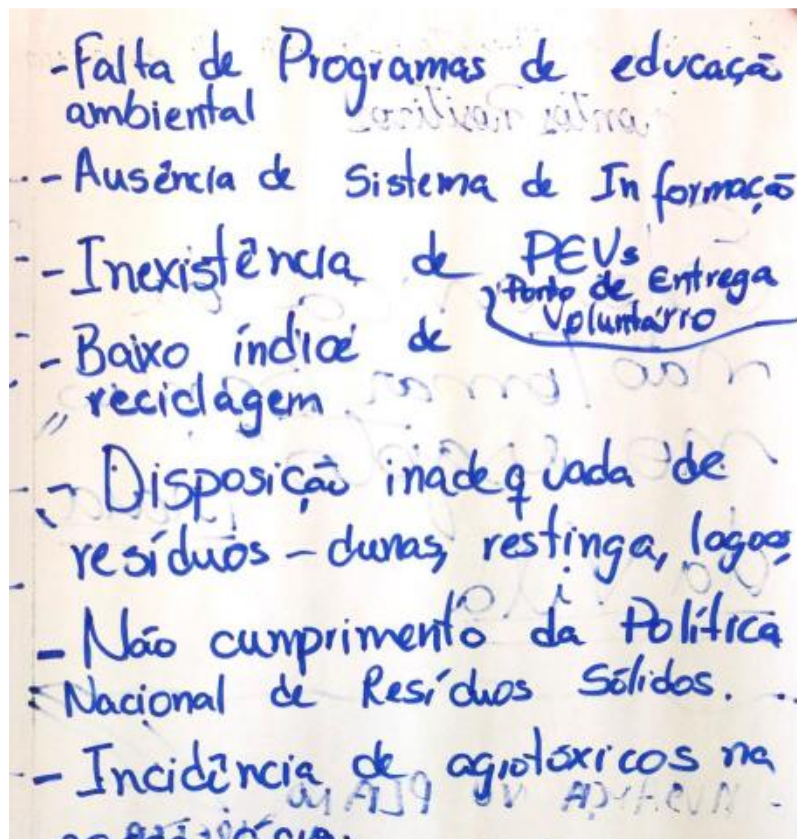 - Falta de Programas de educaçã
ambiental
- Ausência de Sistema de Informação
- Inexistência de PEVs
Ponto de Entrega
Voluntário
- Baixo índice de
reciclagem
- Disposição inadequada de
resíduos - dunas, restinga, lagoas
- Não cumprimento da Política
Nacional de Resíduos Sólidos.
- Incidência de agrotóxicos na